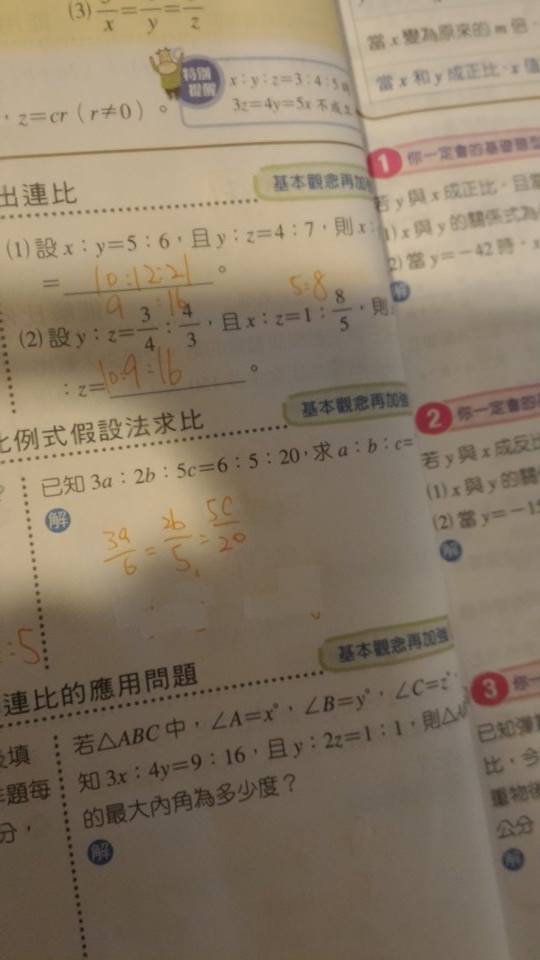 (3) x = y = z
特別提醒
x：y：z=3：4：5
3z=4y=5x 不成立
，z=cr（r≠0）。
當 x 變為原來的 m 倍，
當 x 和 y 成正比，x 值
出連比
基本觀念再加強
(1) 設 x：y=5：6，且 y：z=4：7，則 x：
= 10:12:21 。
9 : 16
5:8
(2) 設 y：z=3/4：4/3，且 x：z=1：8/5，則
：z= 10:9:16 。
比例式假設法求比
基本觀念再加強
已知 3a：2b：5c=6：5：20，求 a：b：c=
解
3a/6 = 2b/5 = 5c/20
:5
連比的應用問題
基本觀念再加強
若△ABC 中，∠A=x°，∠B=y°，∠C=z°，
知 3x：4y=9：16，且 y：2z=1：1，則△
的最大內角為多少度？
解
填
題每
分，
1 你一定會的基礎題型
若 y 與 x 成正比，且當
(1) x 與 y 的關係式為
(2) 當 y=−42 時，x
解
2 你一定會的
若 y 與 x 成反比
(1) x 與 y 的關
(2) 當 y=−15
解
3 你一
已知彈
比，今
重物後
公分
解